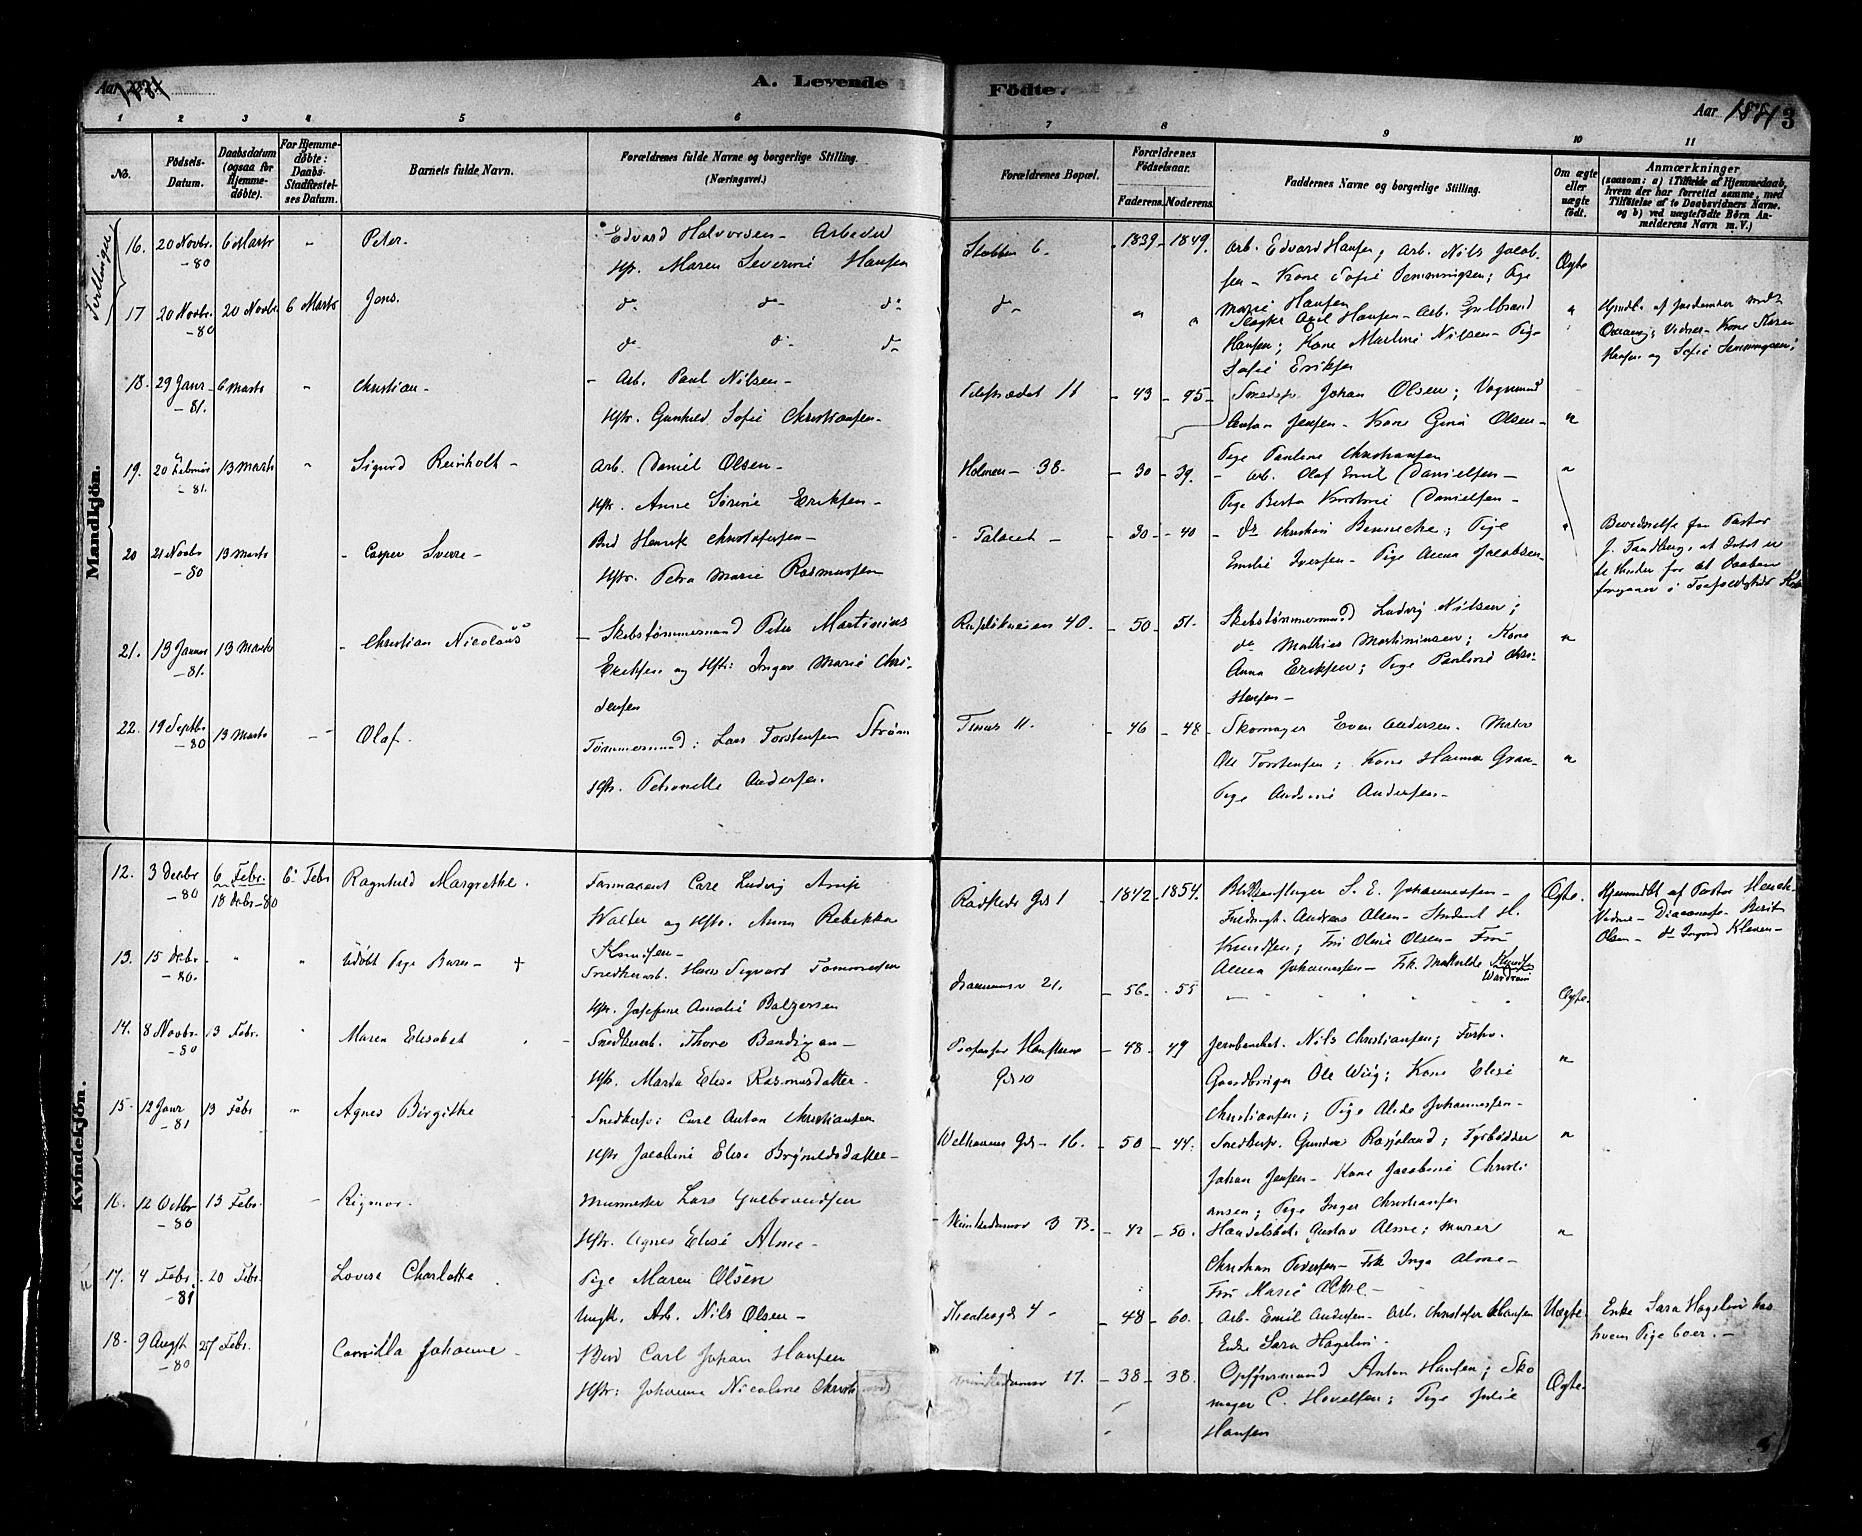 Aar 1881
A. Levende
Födte.
Aar 1881 3
1 2 3 4 5 6 7 8 9 10 11
No.
Födsels-
Datum.
Daabsdatum
(ogsaa for
Hjemme-
døbte).
For Hjemme-
døbte:
Daabs-
Stadfæstel-
ses Datum.
Barnets fulde Navn.
Forældrenes fulde Navne og borgerlige Stilling.
(Næringsvei.)
Forældrenes Bopæl.
Forældrenes
Fødselsaar.
Faderens. Moderens.
Faddernes Navne og borgerlige Stilling.
Om ægte
eller
uægte
født.
Anmærkninger
(saasom: a) i Tilfælde af Hjemmedaab,
hvem der har forrettet samme, med
Tilføielse af to Daabsvidners Navne.
og b) ved uægtefødte Børn An-
melderens Navn m. V.)
Mandkjön.
Tvillinger
16. 20 Novbr -80 6 Marts " Peter.
Edvard Halvorsen - Arbeider
Hstr. Maren Severine Hansen
Stabben 6. 1839 - 1849.
Arb. Edvard Hansen; Arb. Nils Jacob-
sen - Kone Sofie Semmingsen; Pige
Marie Hansen
Ægte
17 20 Novbr -80 20 Novbr 6 Marts Jens.
do do do
do do do
do " "
Axel Hansen - Arb. Gulbrand
Hansen; Kone Martine Nilsen - Pige
Sofie Eriksen
"
Hjmdbt. af Jordemoder
Vidner - Kone Karen
Hansen og Sofie Semmingsen;
18. 29 Janr -81. 6 Marts " Christian -
- Arb. Paul Nilsen -
Hstr. Gunhild Sofie Christiansen -
11 - 43 - 45 -
Johan Olsen; Vognmand
Anton Jensen - Kone Gina Olsen -
Pige Pauline Christiansen
"
19. 20 Februar -81. 13 Marts " Sigurd Reinholt -
Arb. Daniel Olsen -
Hstr. Anne Sørine Eriksen -
Holmen - 38 - - 30 - 39.
- Arb. Olaf Emil Danielsen -
Pige Berta Kristine Danielsen -
"
20 21 Novbr -80 13 Marts - Casper Sverre -
Bud Henrik Christofersen -
Hstr. Petra Marie Rasmussen
- 30 - 40
- do Christian Bennecke; Pige
Emilie Iversen - Pige Anna Jacobsen
"
Bevidnelse fra Pastor
J. Tandberg, at Intet er
til Hinder for at Daaben
foregaaer i
21. 13 Januar -81. 13 Marts - Christian Nicolaus
- Skibstømmermand Peter Martinius
Eriksen og Hstr: Inger Marie Chri-
stensen
40. - 50 - 51.
Skibstømmermand Ludvig Nilsen;
do Mathias Martiniussen; Kone
Anna Eriksen; Pige Pauline Chri-
stensen -
"
22. 19 Septbr -80 13 Marts - Olaf.
Tømmermand: Lars Torstensen Strøm
Hstr. Petronelle Andersen.
11. - 46 - 48 -
Skomager Even Andersen. Maler
Ole Torstensen; Kone Hanna Gran -
Pige Andrine Andersen -
"
Kvindekjön.
12. 3 Decbr -80 6 Febr. 18 Decbr -80 6 Febr Ragnhild Margrethe.
Farmaceut Carl Ludvig
Walter og Hstr. Anna Rebekka
Knudsen -
Gd 1 - 1842 - 1854.
S. E. Johannessen -
Andreas Olsen - Student H.
Knudsen; Fru Oline Olsen - Fru
Anna Johannessen - Frk. Mathilde
Ægte.
Hjemmedbt af Pastor
Vidner - Diaconesse Berit
Olsen - do Ingrid Kleven -
13. 15 Decbr -80. " " Udøbt Pige Barn - †
Snedkerarb. Hans Sigvart Tommesen
Hstr. Josefine Amalie Balzersen
21. - 56 - 55
Ægte.
14. 8 Novbr -80 13 Febr. " Maren Elisabet
Snedkerarb. Thore Bendixen -
Hstr. Marta Elise Rasmusdatter.
Professor Hansteens
Gd 10 - 48 - 49
Nils Christiansen; Forhv.
Gaardbruger Ole Wiig; Kone Elise
Christiansen; Pige Alida Johannessen -
"
15 - 12 Janr -81 13 Febr " Agnes Birgithe
Snedkersv: Carl Anton Christiansen
Hstr Jacobine Elise Brynildsdatter -
Welhavens Gd - 16. - 50 - 44.
Snedkersv. Gunder Rosjøland; Fyrbøder
Johan Jensen - Kone Jacobine Christi-
ansen; Pige Inger Christiansen
"
16. 12 Octbr -80 13 Febr. - Rigmor.
Murmester Lars Gulbrandsen
Hstr. Agnes Elise Alme -
3 B. - 42 - 50.
Handelsbet. Gustav Alme; Murer
Christian Pedersen - Frk Inga Alme -
Fru Marie Alme. -
"
17. 4 Febr. -81 20 Febr. Lovise Charlotte
Pige Maren Olsen
Ungk. Arb. Nils Olsen -
Theatergd 4 - - 48 - 60.
Arb. Emil Andersen - Arb. Christofer Hansen
Enke Sara Hagelin -
Uægte.
Enke Sara Hagelin hos
hvem Pige boer. -
18 - 9 Augst -80 27 Febr. Camilla Johanne -
Bud Carl Johan Hansen
Hstr: Johanna Nicoline
17. - 38 - 38.
Opsynsmand Anton Hansen; Sko-
mager C. Hovelsen; Pige Julie
Hansen
Ægte.